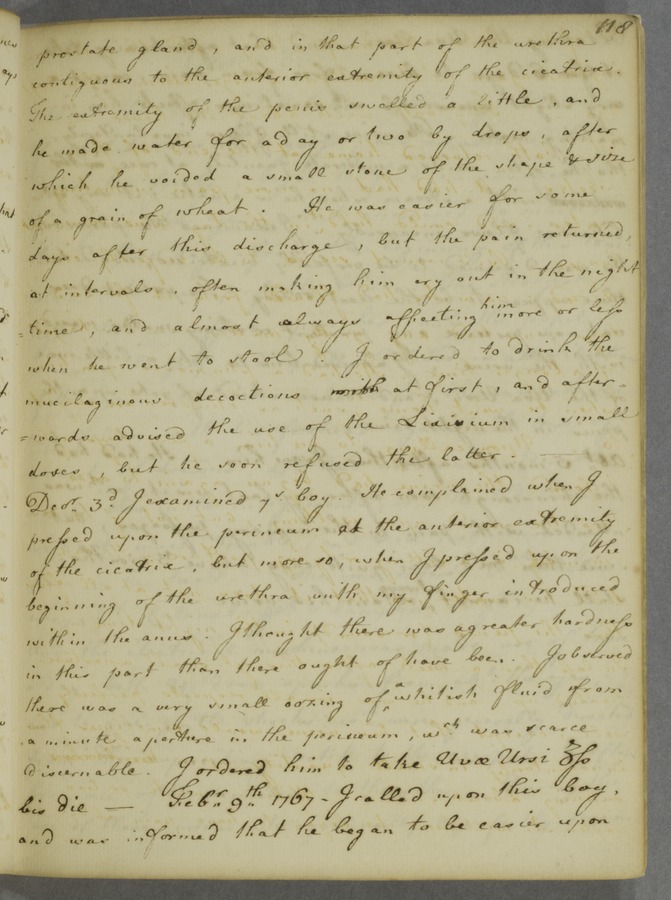 118
prostate gland, and in that part of the urethra
contiguous to the anterior extremity of the cicatrix.
The extremity of the penis swelled a little, and
he made water for a day or two by drops, after
which he voided a small stone of the shape & size
of a grain of wheat. He was easier for some
days after this discharge, but the pain returned,
at intervals, often making him cry out in the night
=time, and almost always affecting him more or less
when he went to stool. I ordered to drink the
mucilaginous decoctions at first, and after-
=wards advised the use of the Lixivium in small
doses, but he soon refused the latter. —
Decr. 3d I examined ys boy. He complained when I
pressed upon the perineum at the anterior extremity
of the cicatrix, but more so, when I pressed upon the
beginning of the urethra with my finger introduced
within the anus. I thought there was a greater hardness
in this part than there ought of have been. I observed
there was a very small oozing of a whitish fluid from
a minute aperture in the perineum, wch was scarce
discernable. I ordered him to take Uvæ Ursi ʒss
bis die — Febr. 9th 1767 - I called upon this boy,
and was informed that he began to be easier upon